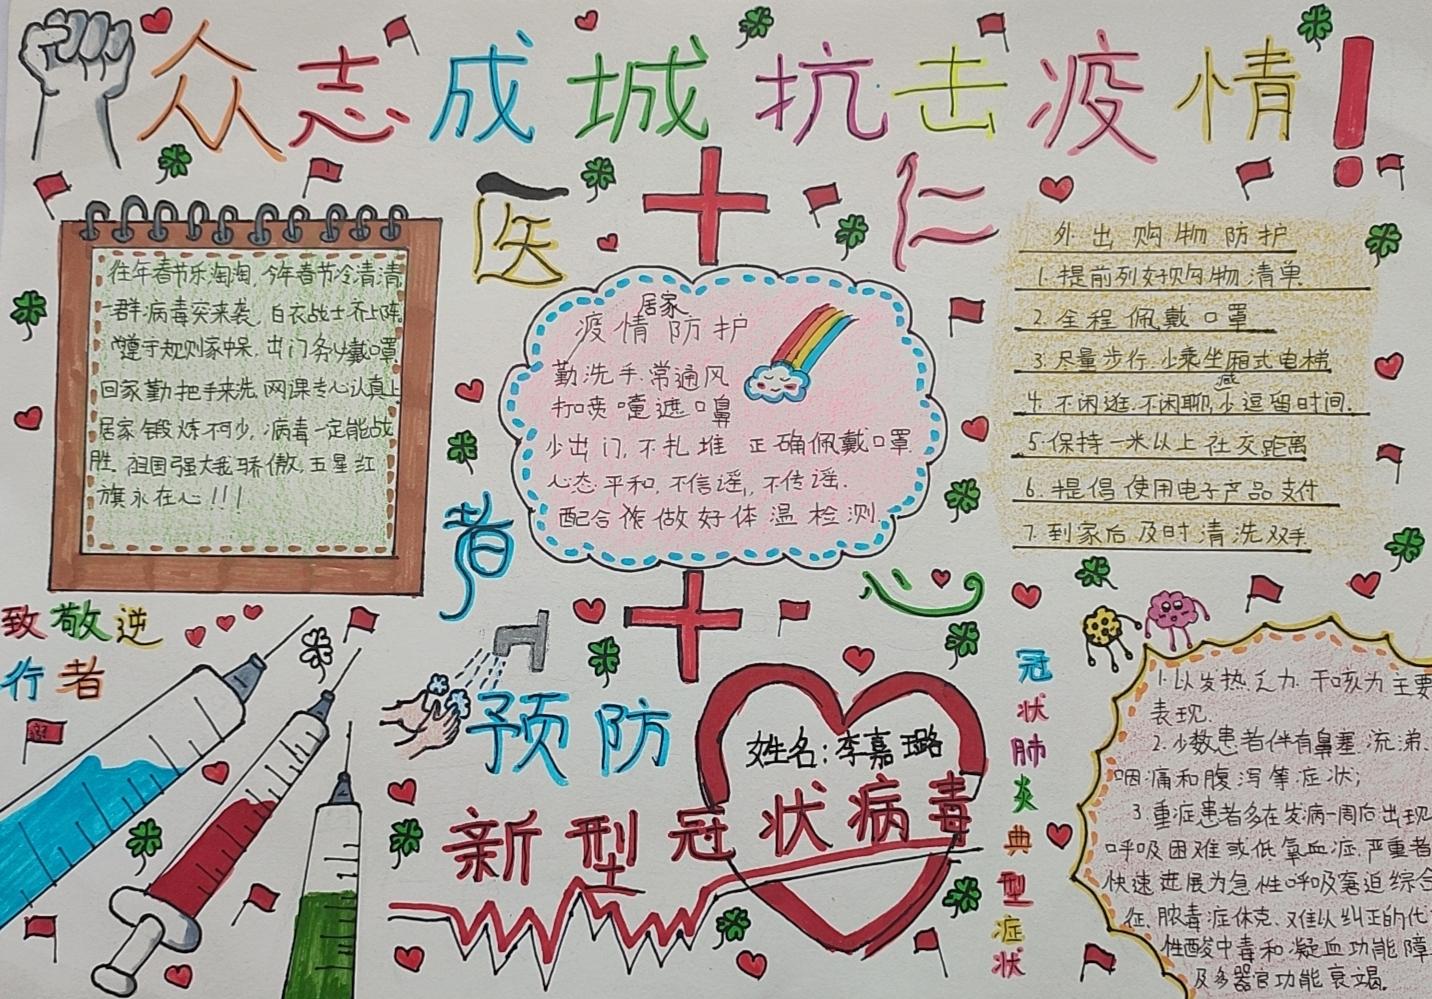 众志成城抗击疫情!
医者仁心
往年春节乐淘淘,今年春节冷清清
一群病毒突来袭,白衣战士齐上阵
遵于规则家中呆,出门务必戴口罩
回家勤把手来洗,网课专心认真上
居家锻炼不可少,病毒一定能战
胜.祖国强大我骄傲,五星红
旗永在心!!!
居家
疫情防护
勤洗手.常通风
打喷嚏遮口鼻
少出门,不扎堆 正确佩戴口罩.
心态平和,不信谣,不传谣.
配合做好体温检测.
外出购物防护
1.提前列好购物清单.
2.全程佩戴口罩
3.尽量步行.少乘坐厢式电梯
4.不闲逛.不闲聊,减少逗留时间.
5.保持一米以上社交距离
6.提倡使用电子产品支付
7.到家后及时清洗双手
致敬逆
行者
预防
姓名:李嘉璐
新型冠状病毒
冠状肺炎典型症状
1.以发热乏力.干咳为主要
表现.
2.少数患者伴有鼻塞.流涕.
咽痛和腹泻等症状;
3.重症患者多在发病一周后出现
呼吸困难或低氧血症.严重者
快速进展为急性呼吸窘迫综合
征.脓毒症休克.难以纠正的代
性酸中毒和凝血功能障
及多器官功能衰竭.